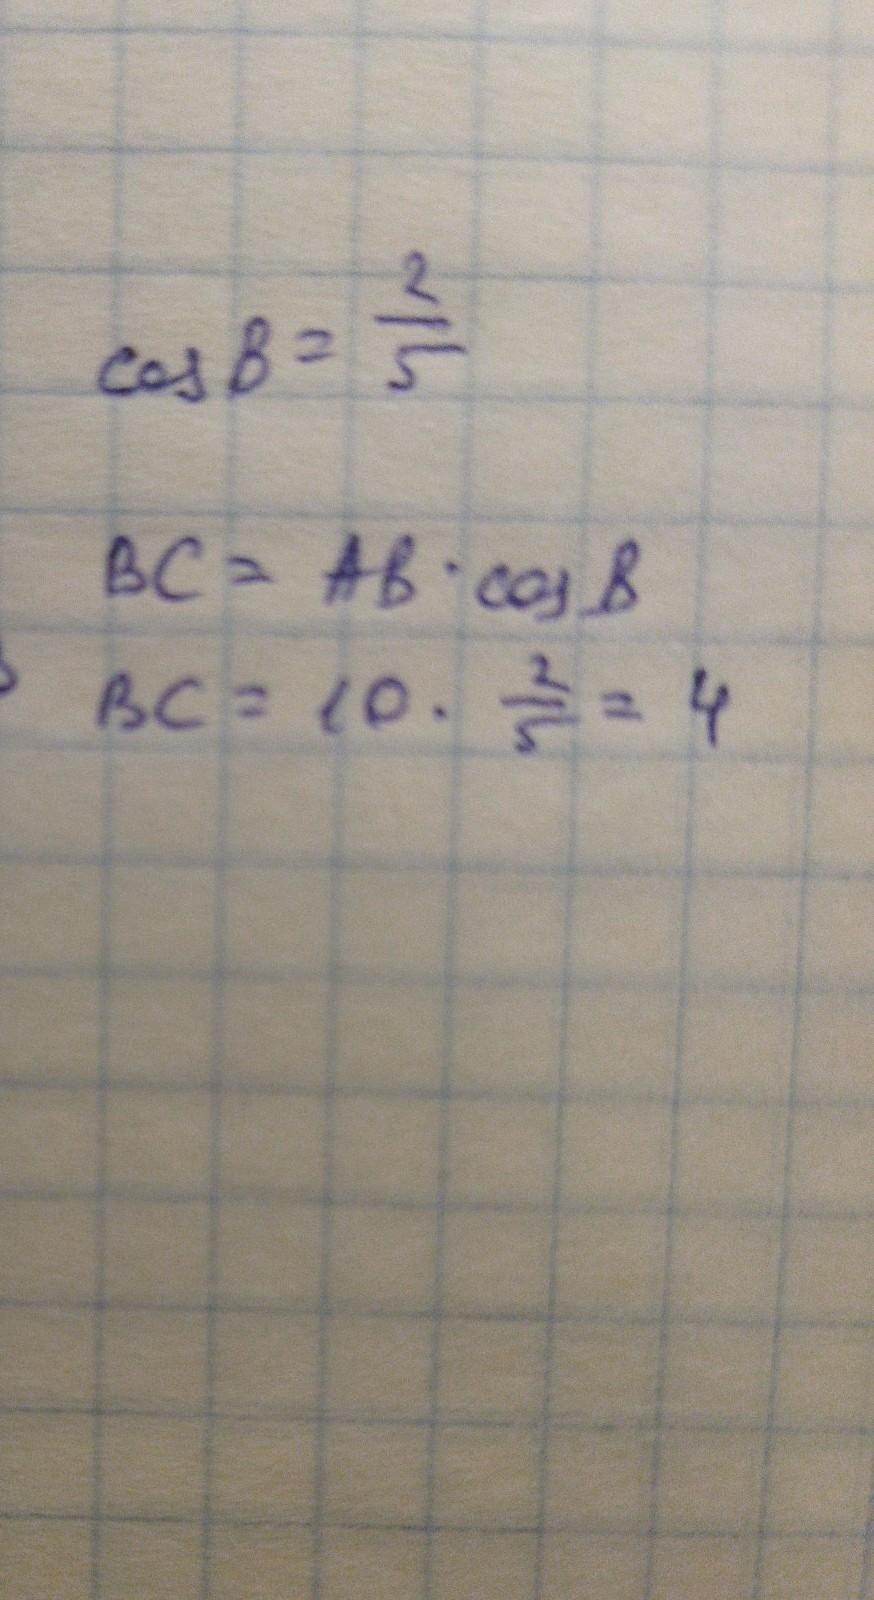 cos B = 2/5
BC = AB · cos B
BC = 10 · 2/5 = 4